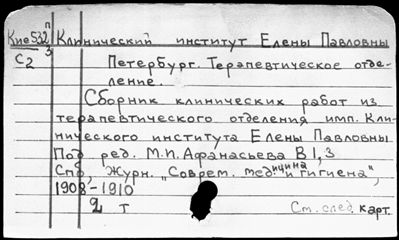 Кие532 п/3 Клинический институт Елены Павловны
С2 Петербург. Терапевтическое отде-
ление.
Сборник клинических работ из
терапевтического отделения имп. Кли-
нического института Елены Павловны
Под ред. М.И. Афанасьева В 1,3
Спб, Журн. "Соврем. медицина и гигиена",
1908-1910
2 т Ст. след. карт.